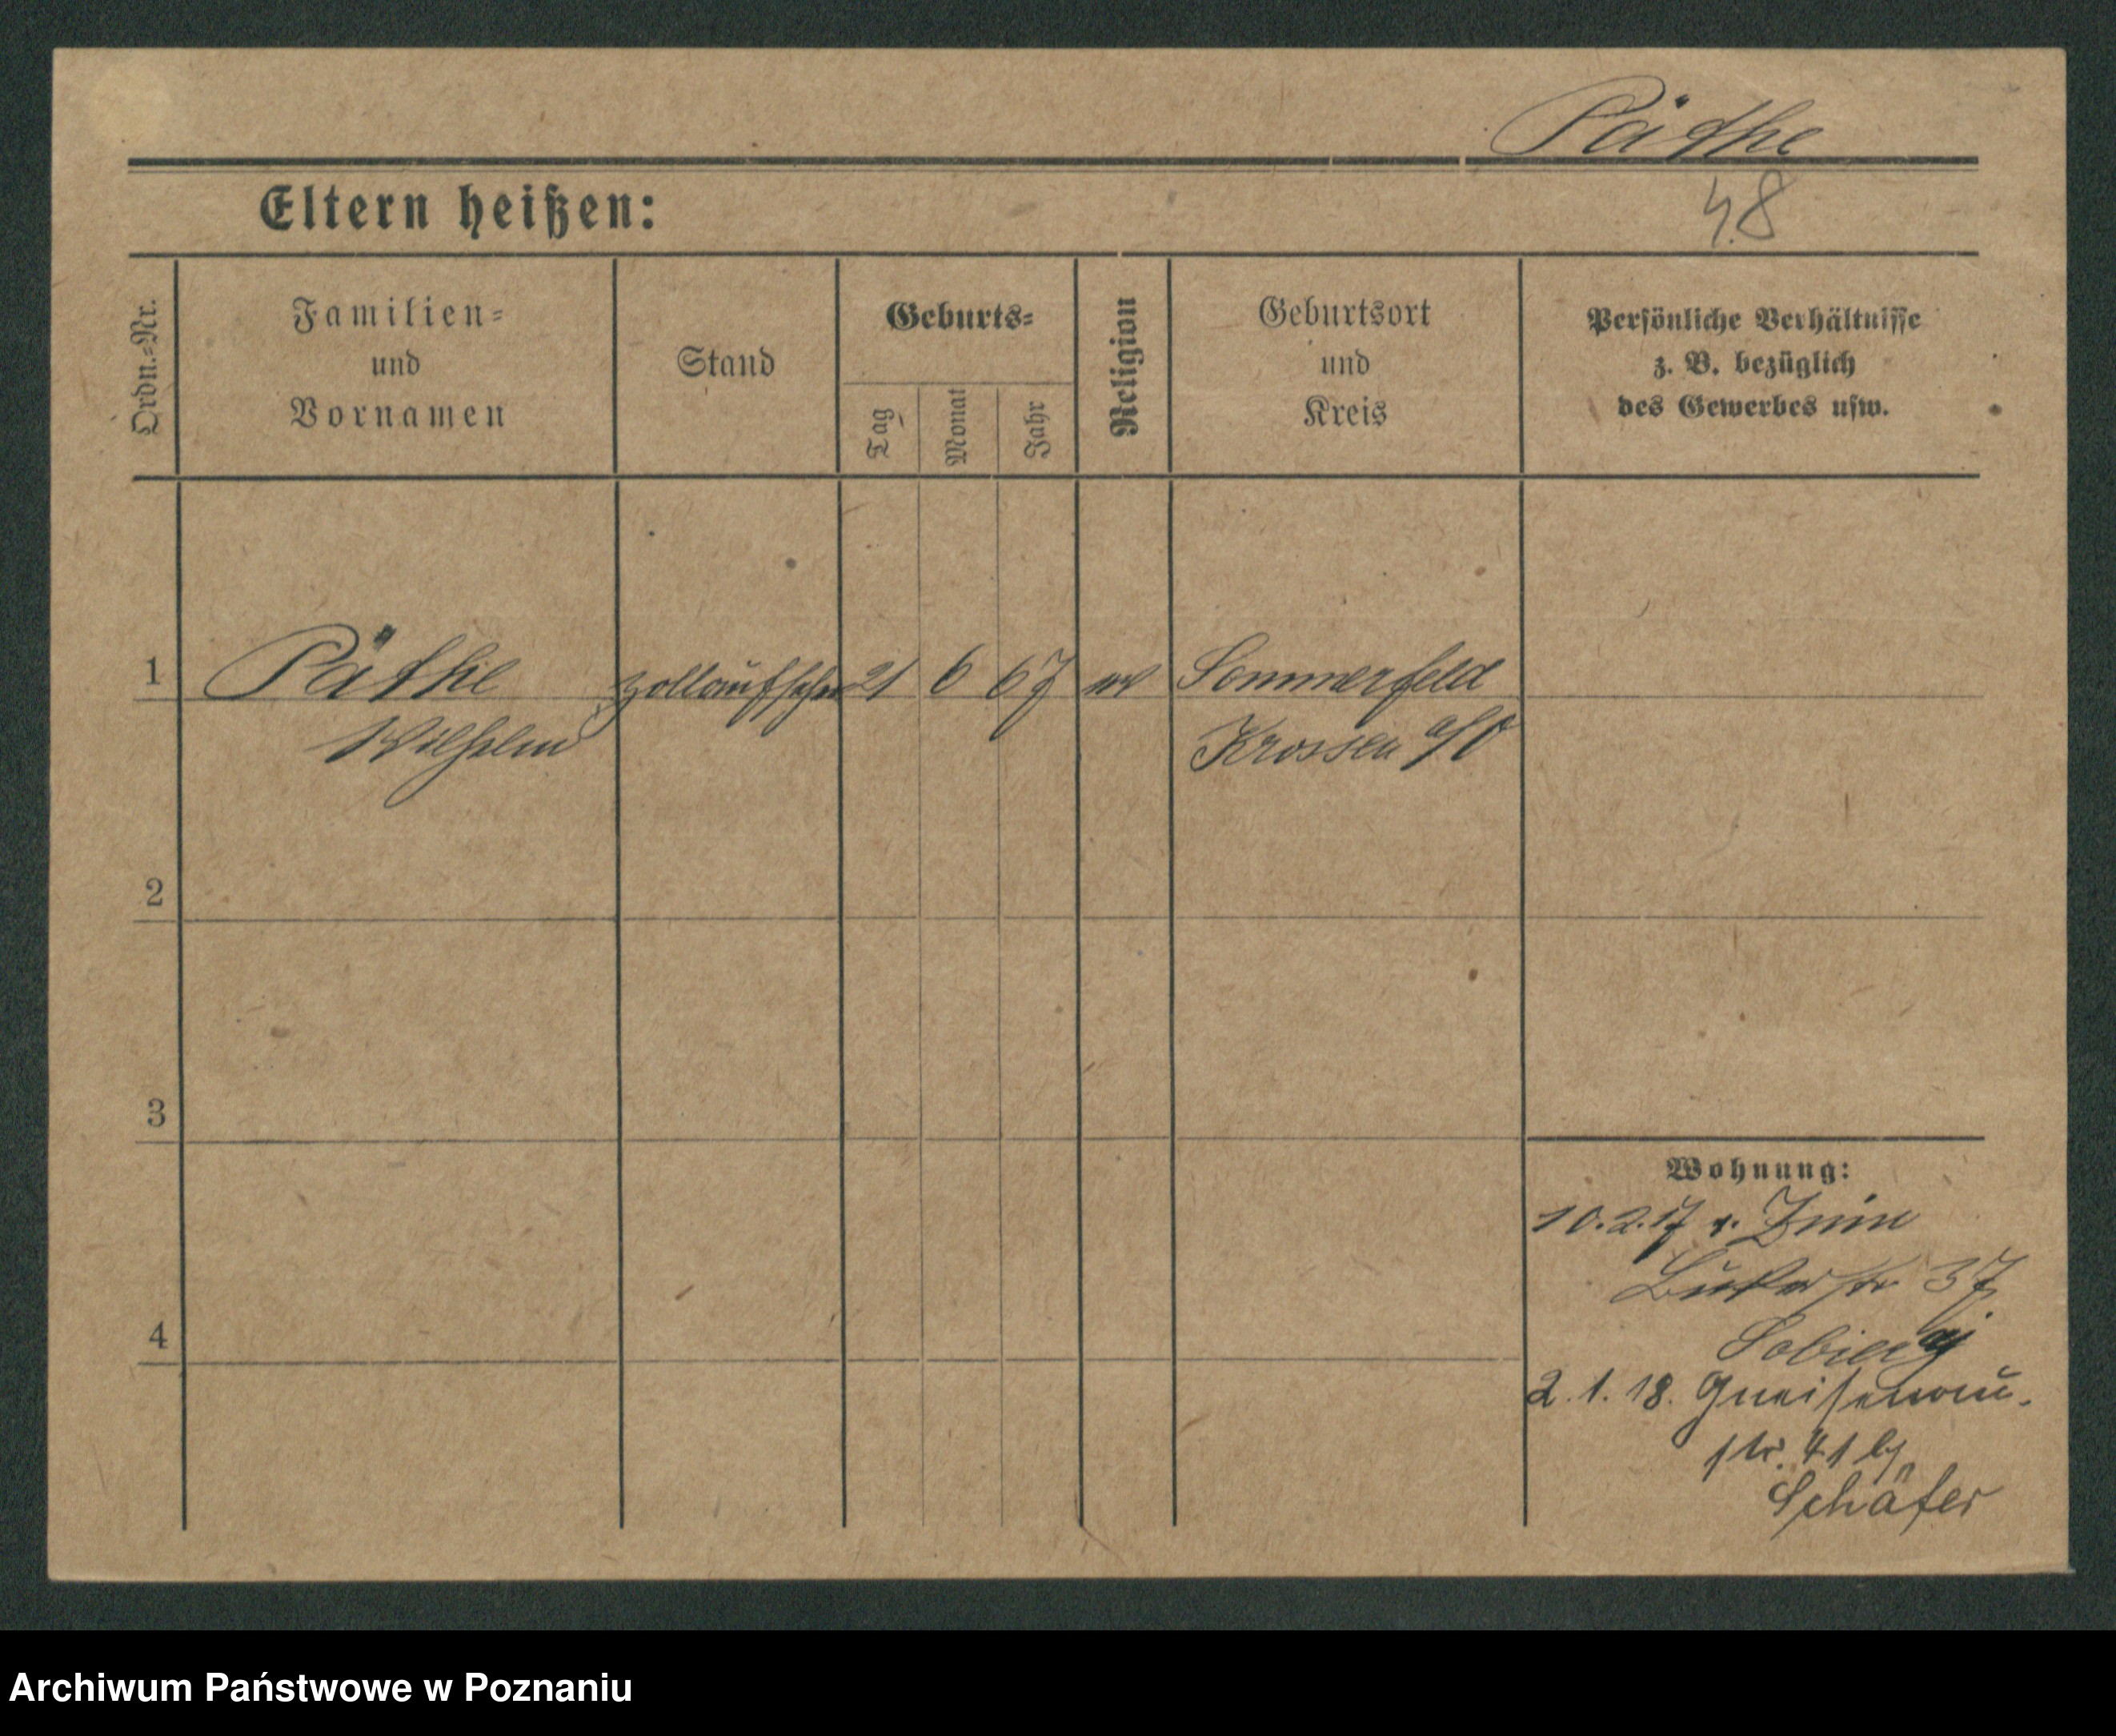 Päthe
Eltern heißen:
48
Ordn.=Nr.
Familien=
und
Vornamen
Stand
Geburts=
Tag
Monat
Jahr
Religion
Geburtsort
und
Kreis
Persönliche Verhältnisse
z. B. bezüglich
des Gewerbes usw.
1
Päthe
Zollaufseher
21
6
67
ev
Sommerfeld
Wilhelm
Krossen a/O
2
3
4
Wohnung:
10.2.17 v. Znin
37
2.1.18. Gneisenau-
str. 41 bj
Schäfer
Archiwum Państwowe w Poznaniu